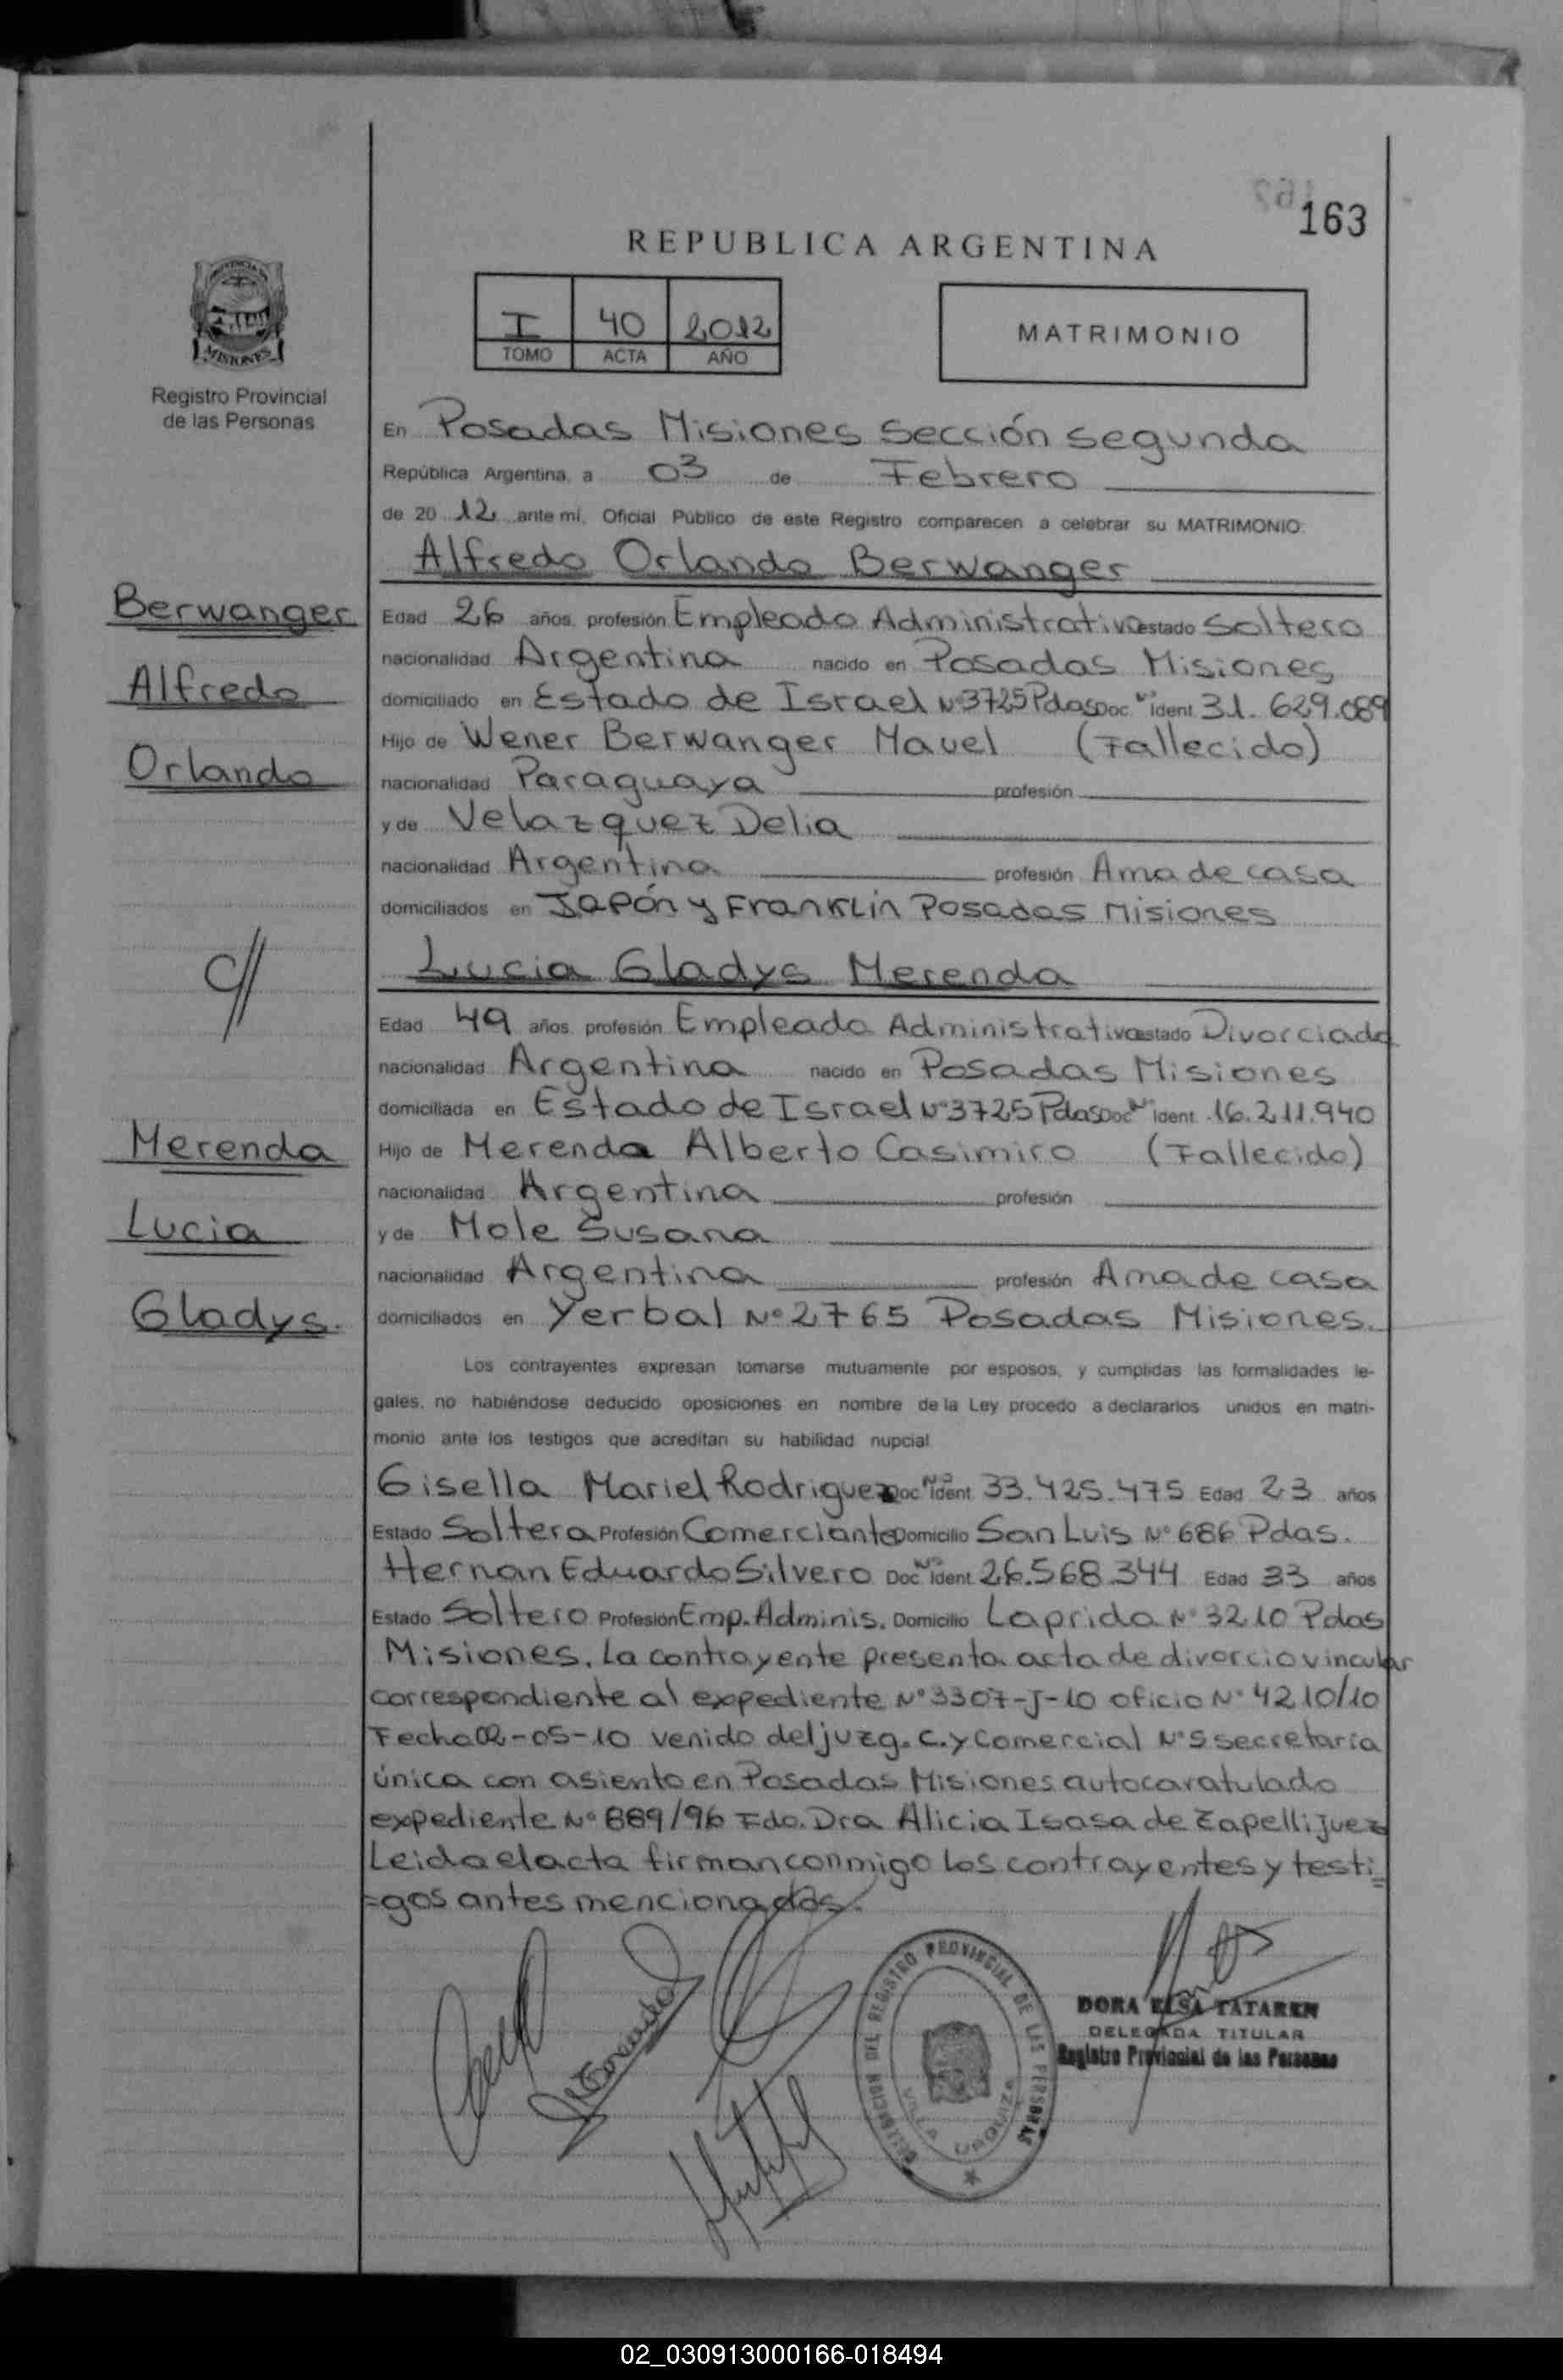 163
REPUBLICA ARGENTINA
I 40 2012
TOMO ACTA AÑO
MATRIMONIO
MISIONES
Registro Provincial
de las Personas
En Posadas Misiones Sección segunda
República Argentina, a 03 de Febrero
de 20 12 ante mí, Oficial Público de este Registro comparecen a celebrar su MATRIMONIO:
Alfredo Orlando Berwanger
Berwanger
Alfredo
Orlando
Edad 26 años, profesión Empleado Administrativo estado Soltero
nacionalidad Argentina nacido en Posadas Misiones
domiciliado en Estado de Israel Nº3725 Pdas Doc Nº ident 31.629.089
Hijo de Wener Berwanger Mauel (Fallecido)
nacionalidad Paraguaya profesión
y de Velazquez Delia
nacionalidad Argentina profesión Ama de casa
domiciliados en Japón y Franklin Posadas Misiones
Lucia Gladys Merenda
Edad 49 años, profesión Empleada Administrativa estado Divorciada
nacionalidad Argentina nacido en Posadas Misiones
domiciliada en Estado de Israel Nº3725 Pdas Doc Nº ident 16.211.940
Merenda
Lucia
Gladys.
Hijo de Merenda Alberto Casimiro (Fallecido)
nacionalidad Argentina profesión
y de Mole Susana
nacionalidad Argentina profesión Ama de casa
domiciliados en Yerbal Nº 2765 Posadas Misiones.
Los contrayentes expresan tomarse mutuamente por esposos, y cumplidas las formalidades le-
gales, no habiéndose deducido oposiciones en nombre de la Ley procedo a declararlos unidos en matri-
monio ante los testigos que acreditan su habilidad nupcial
Gisella Mariel Rodriguez Doc Nº ident 33.425.475 Edad 23 años
Estado Soltera Profesión Comerciante Domicilio San Luis Nº 686 Pdas.
Hernan Eduardo Silvero Doc Nº ident 26.568.344 Edad 33 años
Estado Soltero Profesión Emp. Adminis. Domicilio Laprida Nº 3210 Pdas
Misiones. La contrayente presenta acta de divorcio vincular
correspondiente al expediente Nº 3307-J-10 oficio Nº 4210/10
Fecha 02-05-10 venido del juzg. C. y Comercial Nº5 secretaría
única con asiento en Posadas Misiones autocaratulado
expediente Nº 889/96 Fdo. Dra Alicia Isasa de Zapelli juez
Leida el acta firman conmigo los contrayentes y testi=
=gos antes mencionados.
DELEGACION DEL REGISTRO PROVINCIAL DE LAS PERSONAS
VILLA URQUIZA
DORA ELSA TATAREN
DELEGADA TITULAR
Registro Provincial de las Personas
02_030913000166-018494